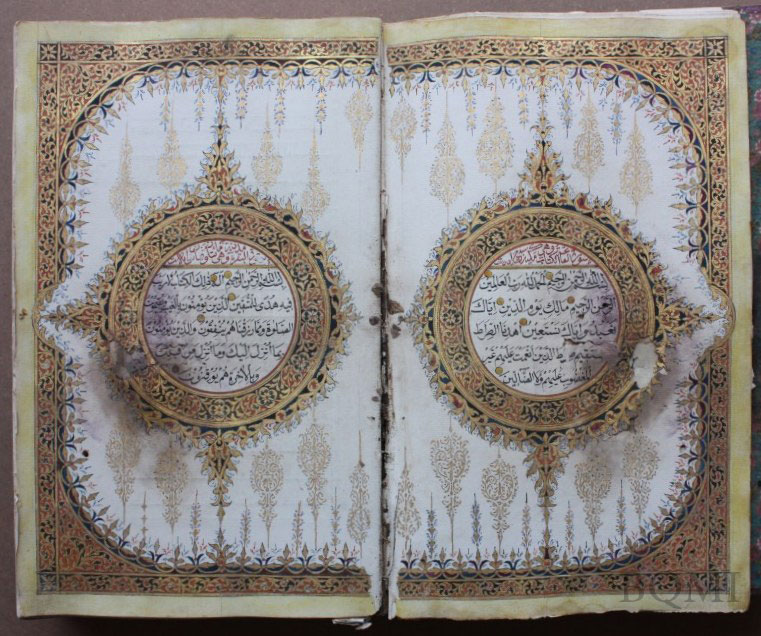 بسم الله الرحمن الرحيم الحمد لله رب العالمين
الرحمن الرحيم مالك يوم الدين اياك
نعبد واياك نستعين اهدنا الصراط
المستقيم صراط الذين انعمت عليهم غير
المغضوب عليهم ولا الضالين
بسم الله الرحمن الرحيم الم ذلك الكتاب لا ريب
فيه هدى للمتقين الذين يؤمنون بالغيب ويقيمون
الصلوة ومما رزقناهم ينفقون والذين يؤمنون
بما انزل اليك وما انزل من قبلك
وبالاخرة هم يوقنون
BQMI